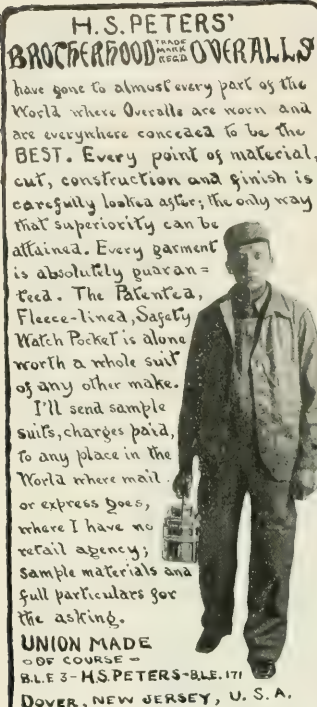 H.S. PETERS'
BROTHERHOOD TRADE MARK REG'D OVERALLS
have gone to almost every part of the
World where Overalls are worn and
are everywhere conceded to be the
BEST. Every point of material,
cut, construction and finish is
carefully looked after; the only way
that superiority can be
attained. Every garment
is absolutely guaran=
teed. The Patented,
Fleece-lined, Safety
Watch Pocket is alone
worth a whole suit
of any other make.
I'll send sample
suits, charges paid,
to any place in the
World where mail
or express goes,
where I have no
retail agency;
sample materials and
full particulars for
the asking.
UNION MADE
- OF COURSE -
B.L.E 3 - H.S. PETERS - B.L.E. 171
DOVER, NEW JERSEY, U.S.A.